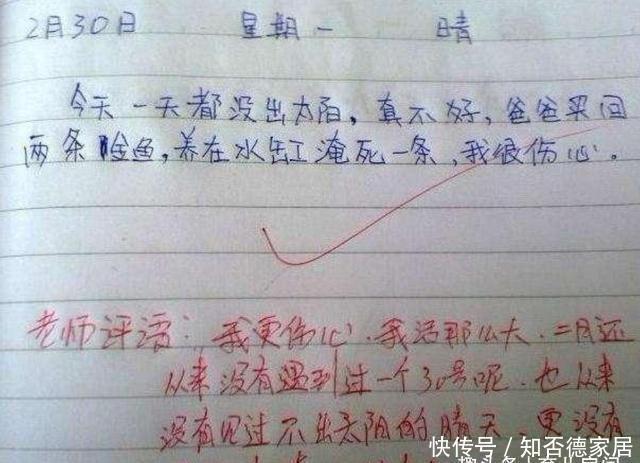 2月30日 星期一 晴
今天一天都没出太阳，真不好，爸爸买回
两条金鱼，养在水缸淹死一条，我很伤心。
老师评语：我更伤心。我活那么大．二月还
从来没有遇到过一个30号呢．也从来
没有见过不出太阳的晴天．更没有
快传号／知否德家居